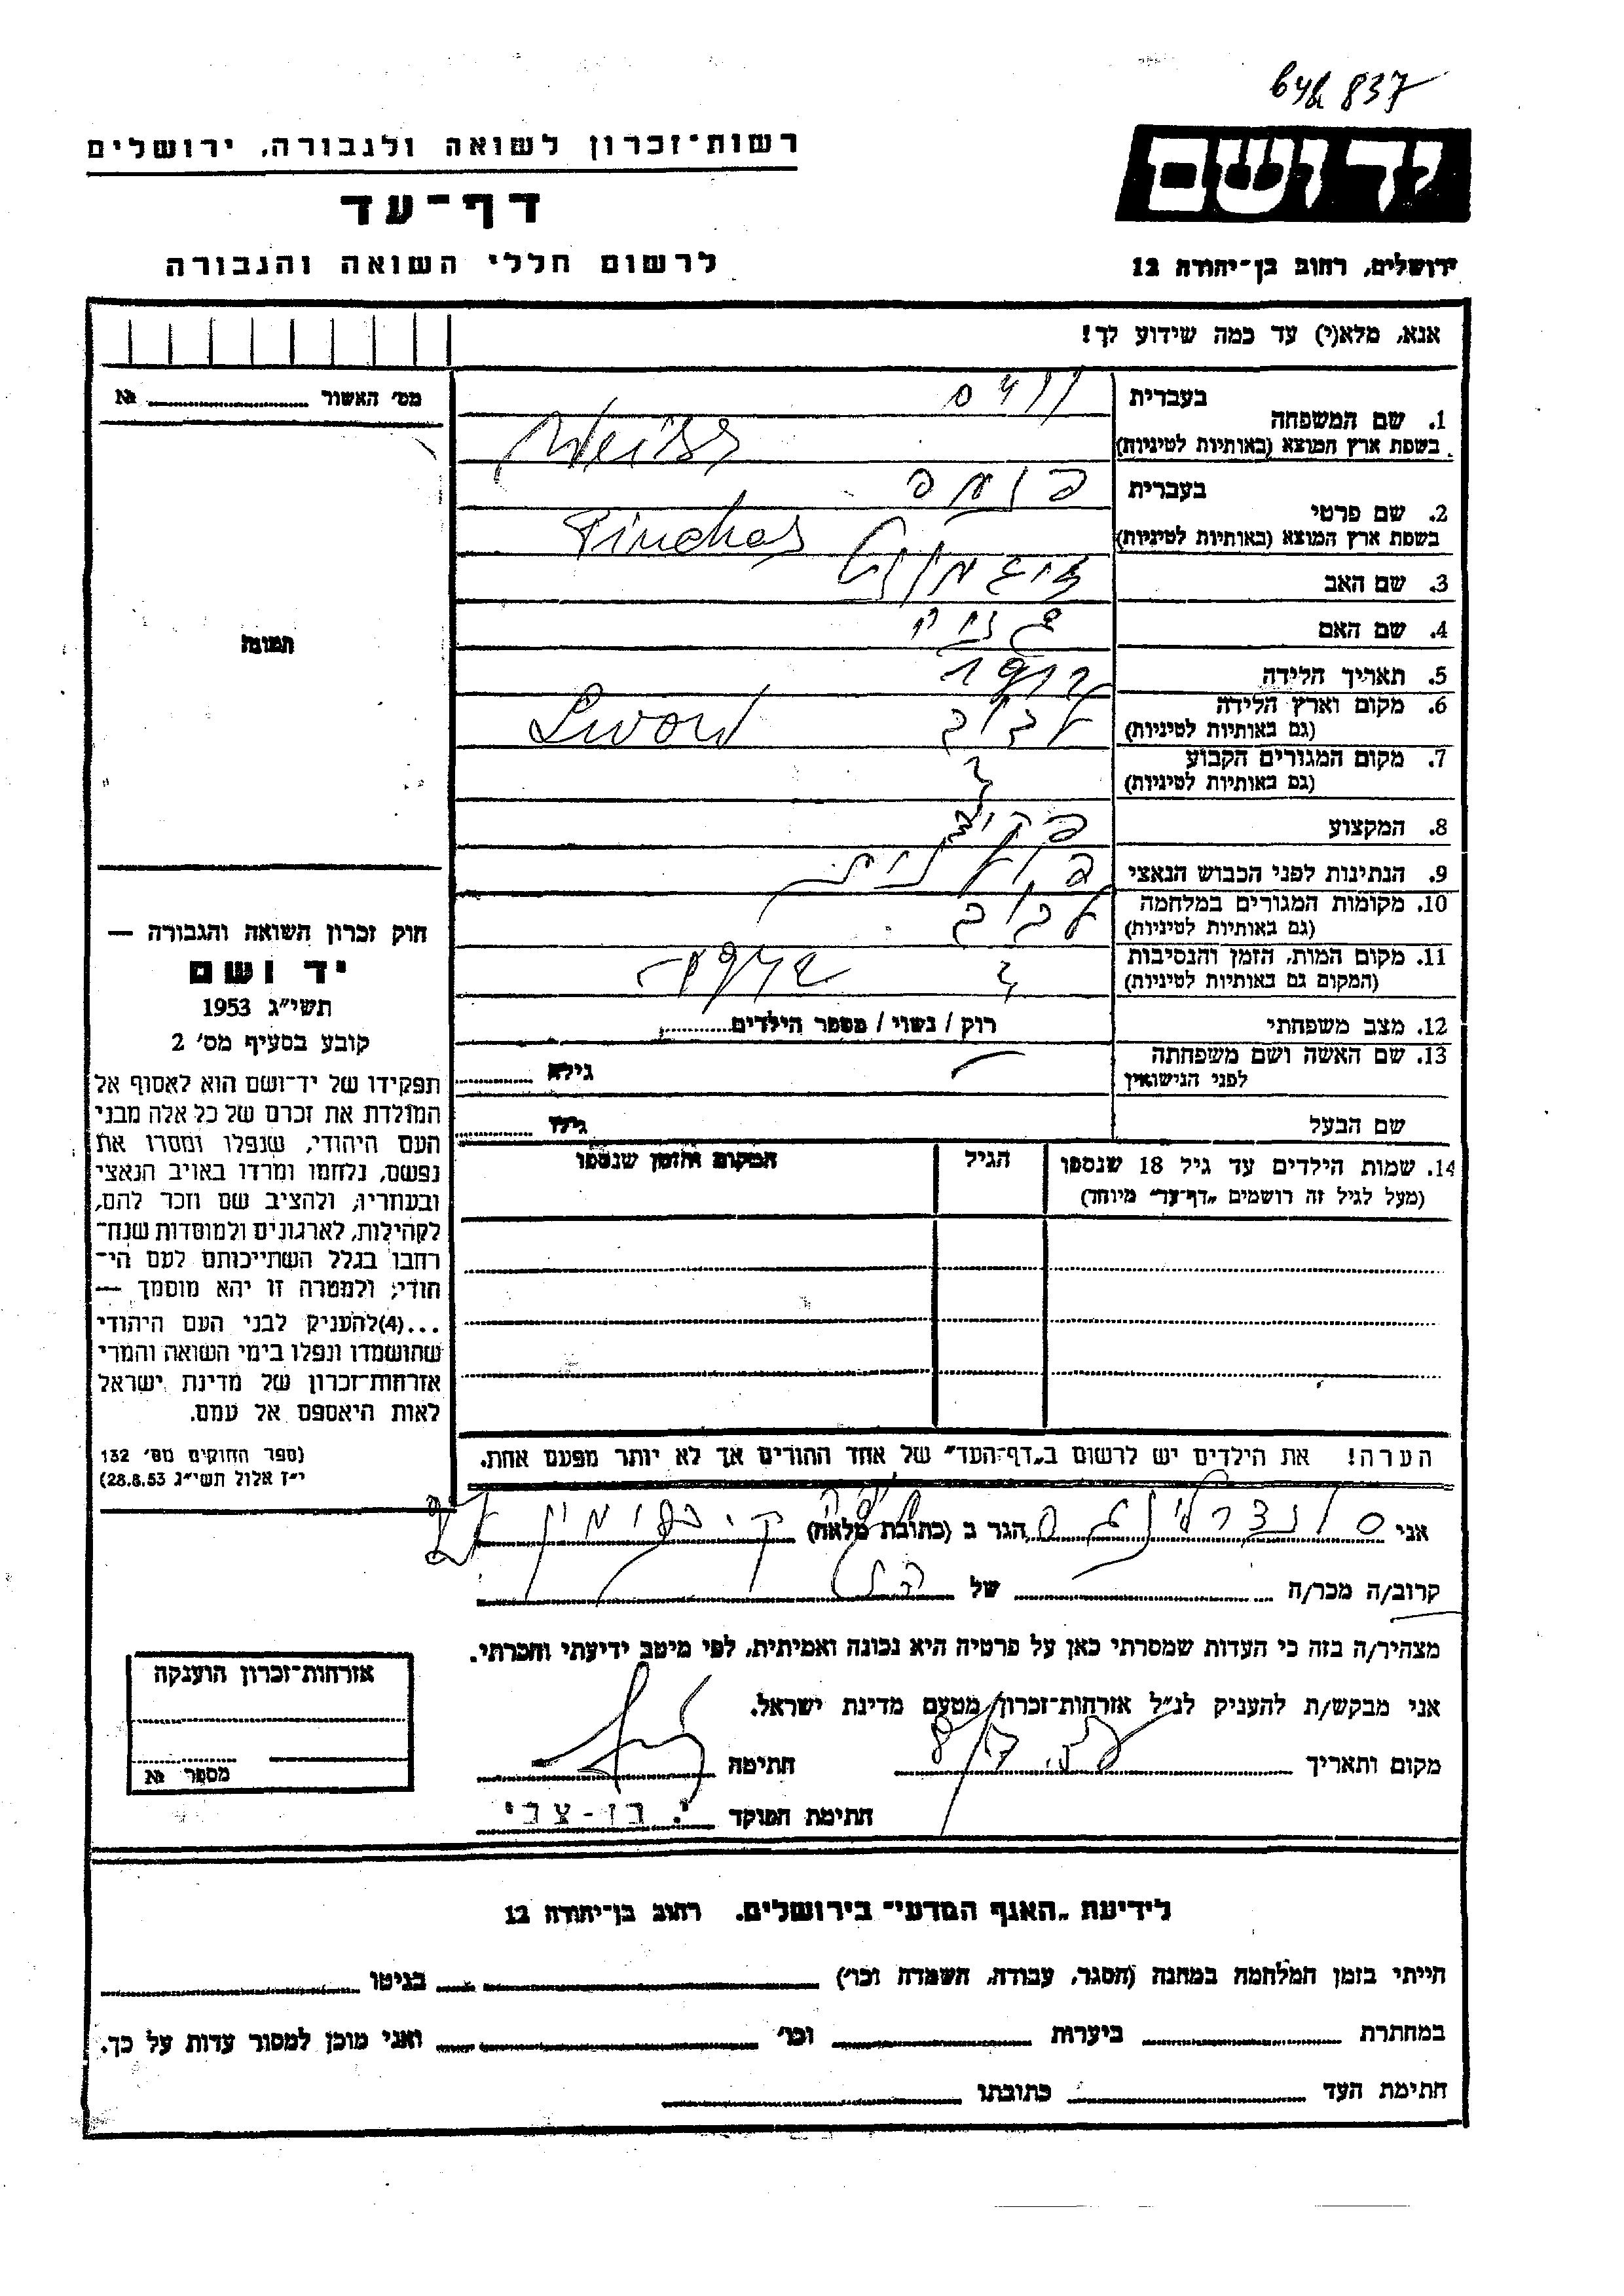 837
יד ושם
רשות-זכרון לשואה ולגבורה, ירושלים
דף-עד
לרשום חללי השואה והגבורה
ירושלים, רחוב בן-יהודה 12
אנא, מלא(י) עד כמה שידוע לך!
מס' האשור № 
1. שם המשפחה בעברית
ווייס
בשפת ארץ המוצא (באותיות לטיניות)
Weiss
2. שם פרטי בעברית
פנחס
בשפת ארץ המוצא (באותיות לטיניות)
Pinchas
3. שם האב זיגמונט
4. שם האם
5. תאריך הלידה
6. מקום וארץ הלידה לבוב
(גם באותיות לטיניות)
7. מקום המגורים הקבוע
(גם באותיות לטיניות)
8. המקצוע פקיד
9. הנתינות לפני הכבוש הנאצי פולנית
10. מקומות המגורים במלחמה לבוב
(גם באותיות לטיניות)
11. מקום המות, הזמן והנסיבות
(המקום גם באותיות לטיניות)
12. מצב משפחתי רוק / נשוי / מספר הילדים
13. שם האשה ושם משפחתה
לפני הנישואין גילה
שם הבעל גילו
14. שמות הילדים עד גיל 18 שנספו הגיל המקום והזמן שנספו
(מעל לגיל זה רושמים "דף-עד" מיוחד)
הערה! את הילדים יש לרשום ב"דף-העד" של אחד ההורים אך לא יותר מפעם אחת.
תמונה
חוק זכרון השואה והגבורה —
יד ושם
תשי"ג 1953
קובע בסעיף מס' 2
תפקידו של יד-ושם הוא לאסוף אל
המולדת את זכרם של כל אלה מבני
העם היהודי, שנפלו ומסרו את
נפשם, נלחמו ומרדו באויב הנאצי
ובעוזריו, ולהציב שם וזכר להם,
לקהילות, לארגונים ולמוסדות שנח-
רבו בגלל השתייכותם לעם הי-
הודי; ולמטרה זו יהא מוסמך —
...(4)להעניק לבני העם היהודי
שהושמדו ונפלו בימי השואה והמרי
אזרחות-זכרון של מדינת ישראל
לאות היאספם אל עמם.
(ספר החוקים מס' 132
י"ז אלול תשי"ג 28.8.53)
אני הגר ב (כתובת מלאה)
קרוב/ה מכר/ה של
מצהיר/ה בזה כי העדות שמסרתי כאן על פרטיה היא נכונה ואמיתית, לפי מיטב ידיעתי והכרתי.
אני מבקש/ת להעניק לנ"ל אזרחות-זכרון מטעם מדינת ישראל.
מקום ותאריך חתימה
חתימת הפוקד י. בן-צבי
אזרחות-זכרון הוענקה
מספר №
לידיעת "האגף המדעי" בירושלים. רחוב בן-יהודה 12
הייתי בזמן המלחמה במחנה (הסגר, עבודה, השמדה וכו') בגיטו
במחתרת ביערות וכו' ואני מוכן למסור עדות על כך.
חתימת העד כתובתו